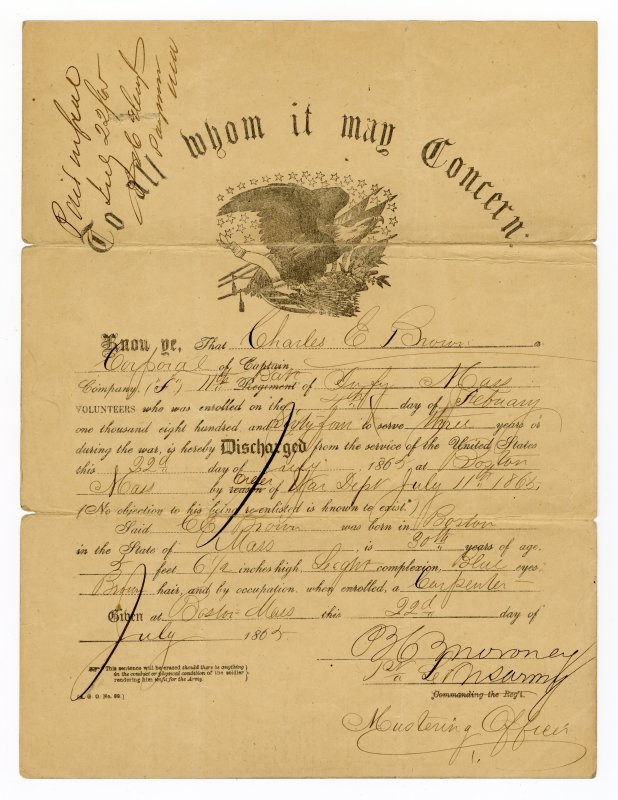 Paid in full
July 22/65
Paymr
To all whom it may Concern:
Know ye, That Charles E Brown a
Corporal of Captain
Company, ("F") 11th Batt Regiment of Infy Mass
VOLUNTEERS who was enrolled on the day of February
one thousand eight hundred, and Sixty four to serve three years or
during the war, is hereby Discharged from the service of the United States
this 22d day of July, 1865, at Boston
Mass by reason of Order War Dept July 11th 1865,
(No objection to his being re-enlisted is known to exist.*)
Said C E Brown was born in Boston
in the State of Mass, is 30th years of age,
5 feet 6 1/2 inches high, Light complexion, Blue eyes,
Brown hair, and by occupation, when enrolled, a Carpenter
Given at Boston Mass this 22d day of
July 1865
This sentence will be erased should there be anything
in the conduct or physical condition of the soldier
rendering him unfit for the Army.
[A. G. O. No. 99.]
1st Lt U S Army
Commanding the Reg't.
Mustering Officer